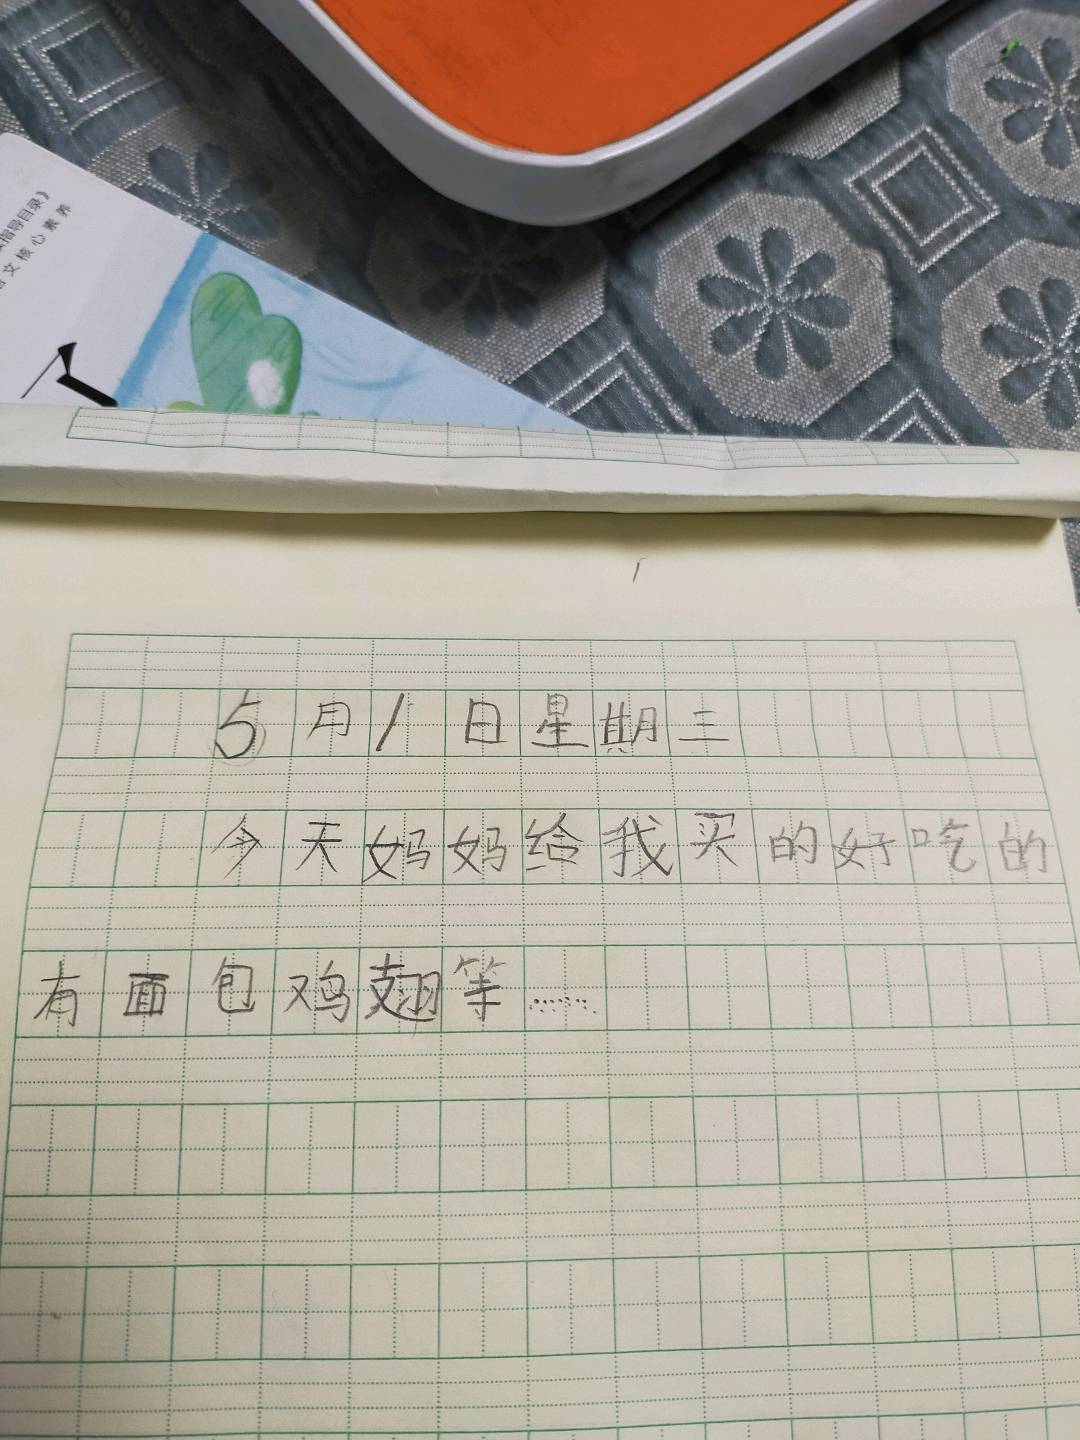 指导目录》
文核心素养
5月1日星期三
今天妈妈给我买的好吃的
有面包鸡翅等……